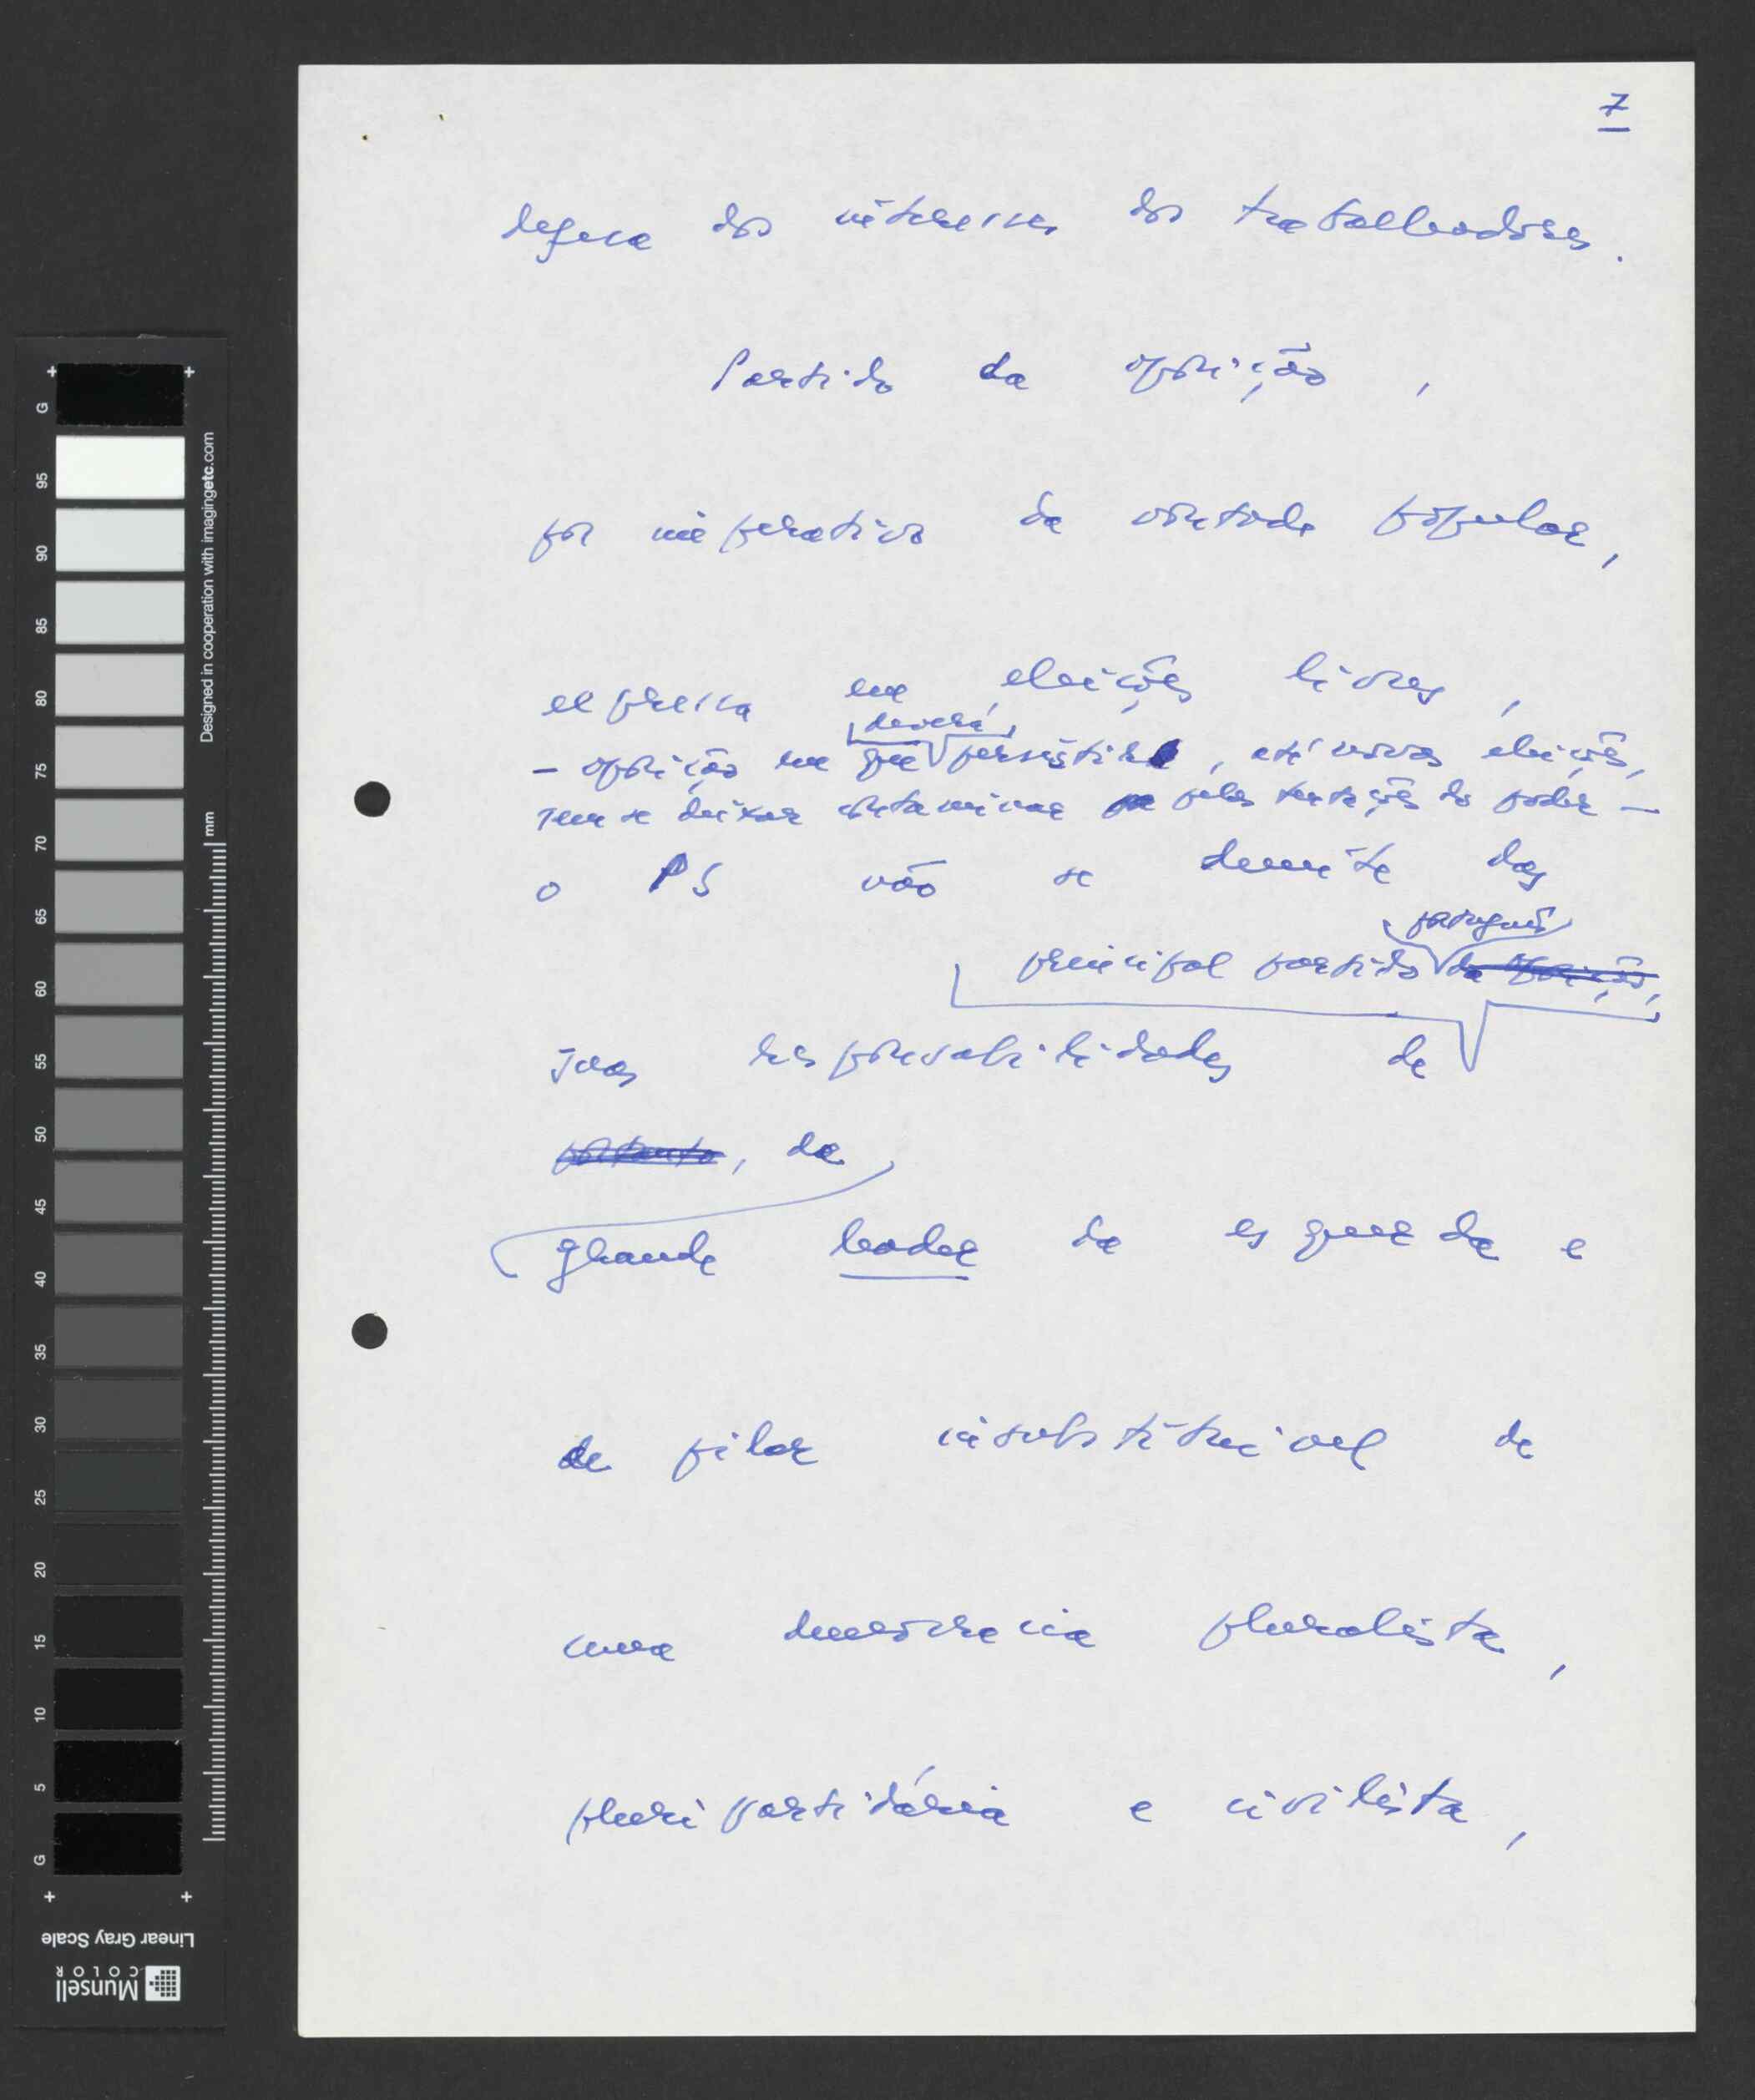 7
defesa dos interesses dos trabalhadores.
Partido da oposição,
por imperativo da vontade popular,
expressa em eleições livres,
deverá
– oposição em que persistir, até novas eleições,
sem se deixar contaminar pelas tentações do poder –
o PS não se demite das
português
principal partido da oposição,
suas responsabilidades de
portanto, de
grande leader da esquerda e
de pilar insubstituível de
uma democracia pluralista,
pluripartidária e civilista,
G
95
90
85
80
75
70
65
60
55
50
45
40
35
30
25
20
15
10
5
G
Designed in cooperation with imagingetc.com
mm
Linear Gray Scale
Munsell
COLOR